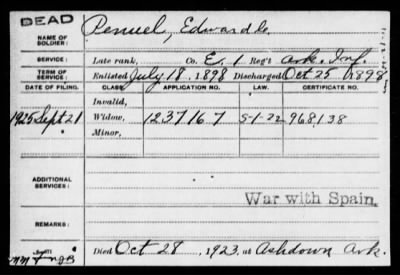 DEAD
NAME OF SOLDIER: Penuel, Edward G.
SERVICE: Late rank, Co. E, 1 Reg't Ark. Inf.
TERM OF SERVICE: Enlisted July 18, 1898 Discharged Oct 25, 1898
DATE OF FILING. CLASS. APPLICATION NO. LAW. CERTIFICATE NO.
Invalid,
1925 Sept 21 Widow, 1237167 5-1-22 968138
Minor,
ADDITIONAL SERVICES:
War with Spain.
REMARKS:
Died Oct 28, 1923, at Ashdown Ark.